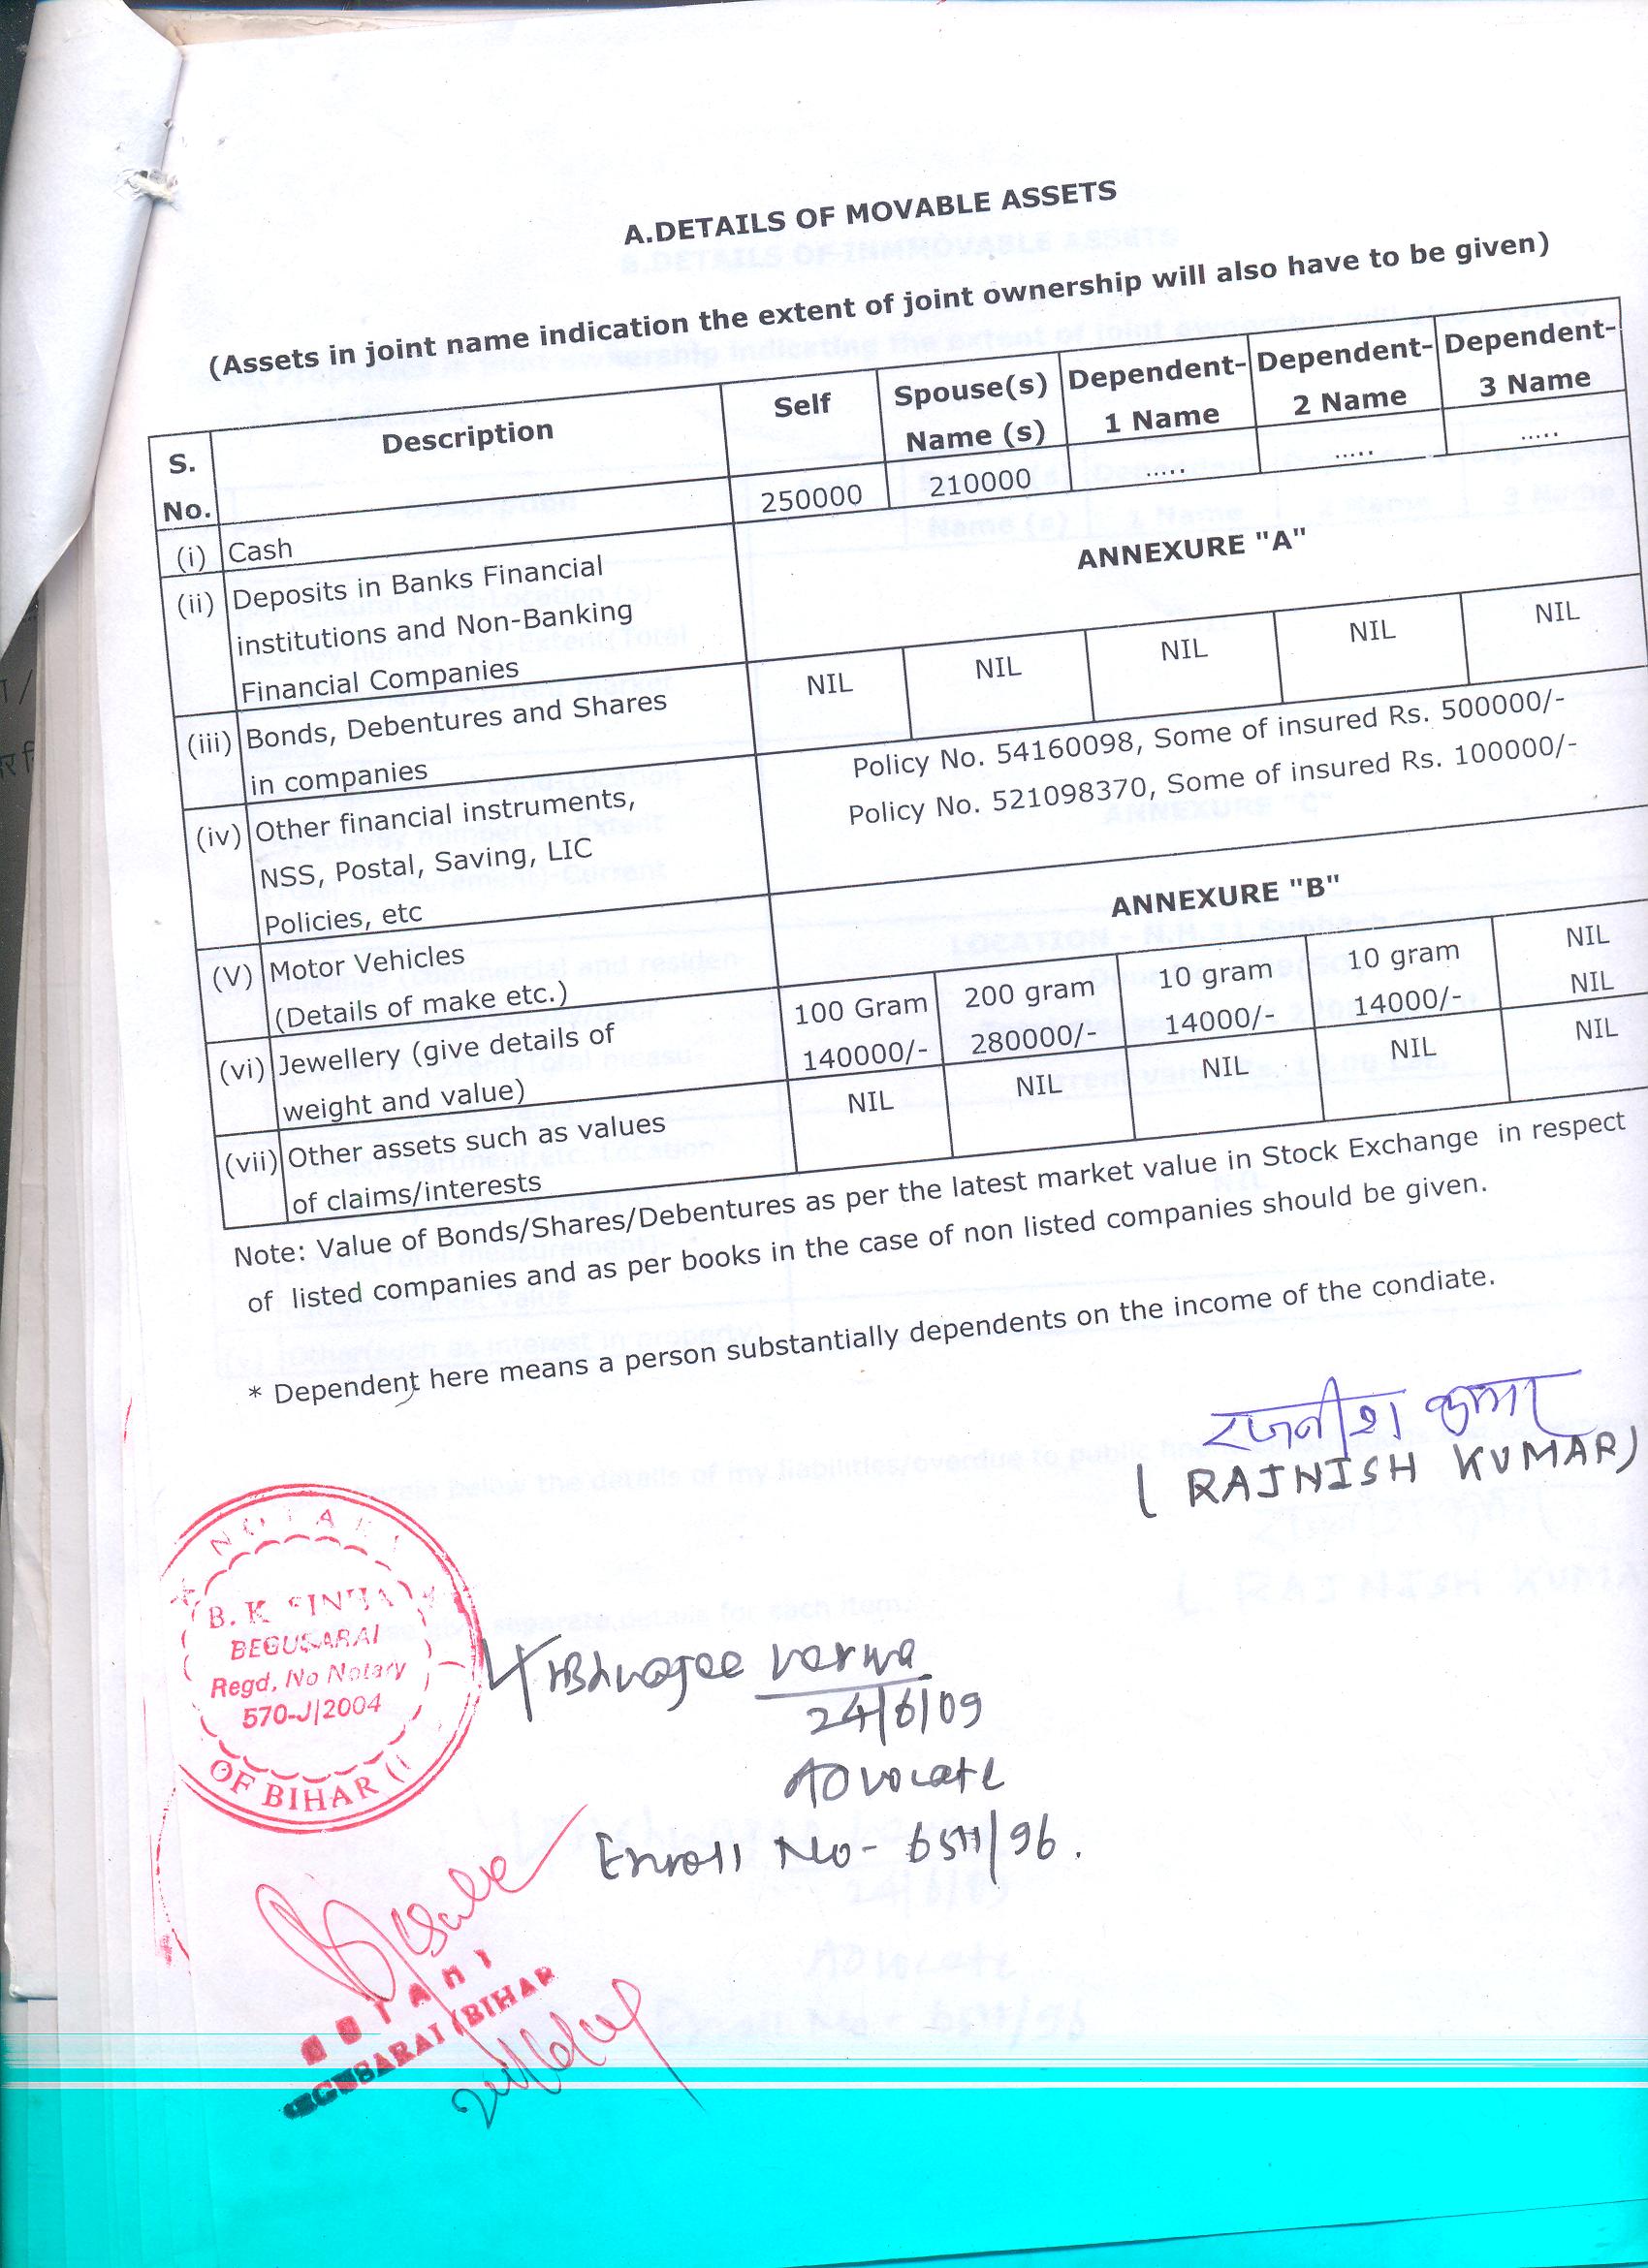 A.DETAILS OF MOVABLE ASSETS
(Assets in joint name indication the extent of joint ownership will also have to be given)
S. No. Description Self Spouse(s) Name (s) Dependent-1 Name Dependent-2 Name Dependent-3 Name
(i) Cash 250000 210000 ..... ..... .....
(ii) Deposits in Banks Financial ANNEXURE "A"
institutions and Non-Banking
Financial Companies
(iii) Bonds, Debentures and Shares NIL NIL NIL NIL NIL
in companies
(iv) Other financial instruments, Policy No. 54160098, Some of insured Rs. 500000/-
NSS, Postal, Saving, LIC Policy No. 521098370, Some of insured Rs. 100000/-
Policies, etc
(V) Motor Vehicles ANNEXURE "B"
(Details of make etc.)
(vi) Jewellery (give details of 100 Gram 200 gram 10 gram 10 gram NIL
weight and value) 140000/- 280000/- 14000/- 14000/- NIL
(vii) Other assets such as values NIL NIL NIL NIL NIL
of claims/interests
Note: Value of Bonds/Shares/Debentures as per the latest market value in Stock Exchange in respect
of listed companies and as per books in the case of non listed companies should be given.
* Dependent here means a person substantially dependents on the income of the condiate.
रजनीश कुमार
( RAJNISH KUMAR)
NOTARY
B. K SINHA
BEGUSARAI
Regd. No Notary
570-J/2004
OF BIHAR (I
verma
24/6/09
Advocate
Enroll No-